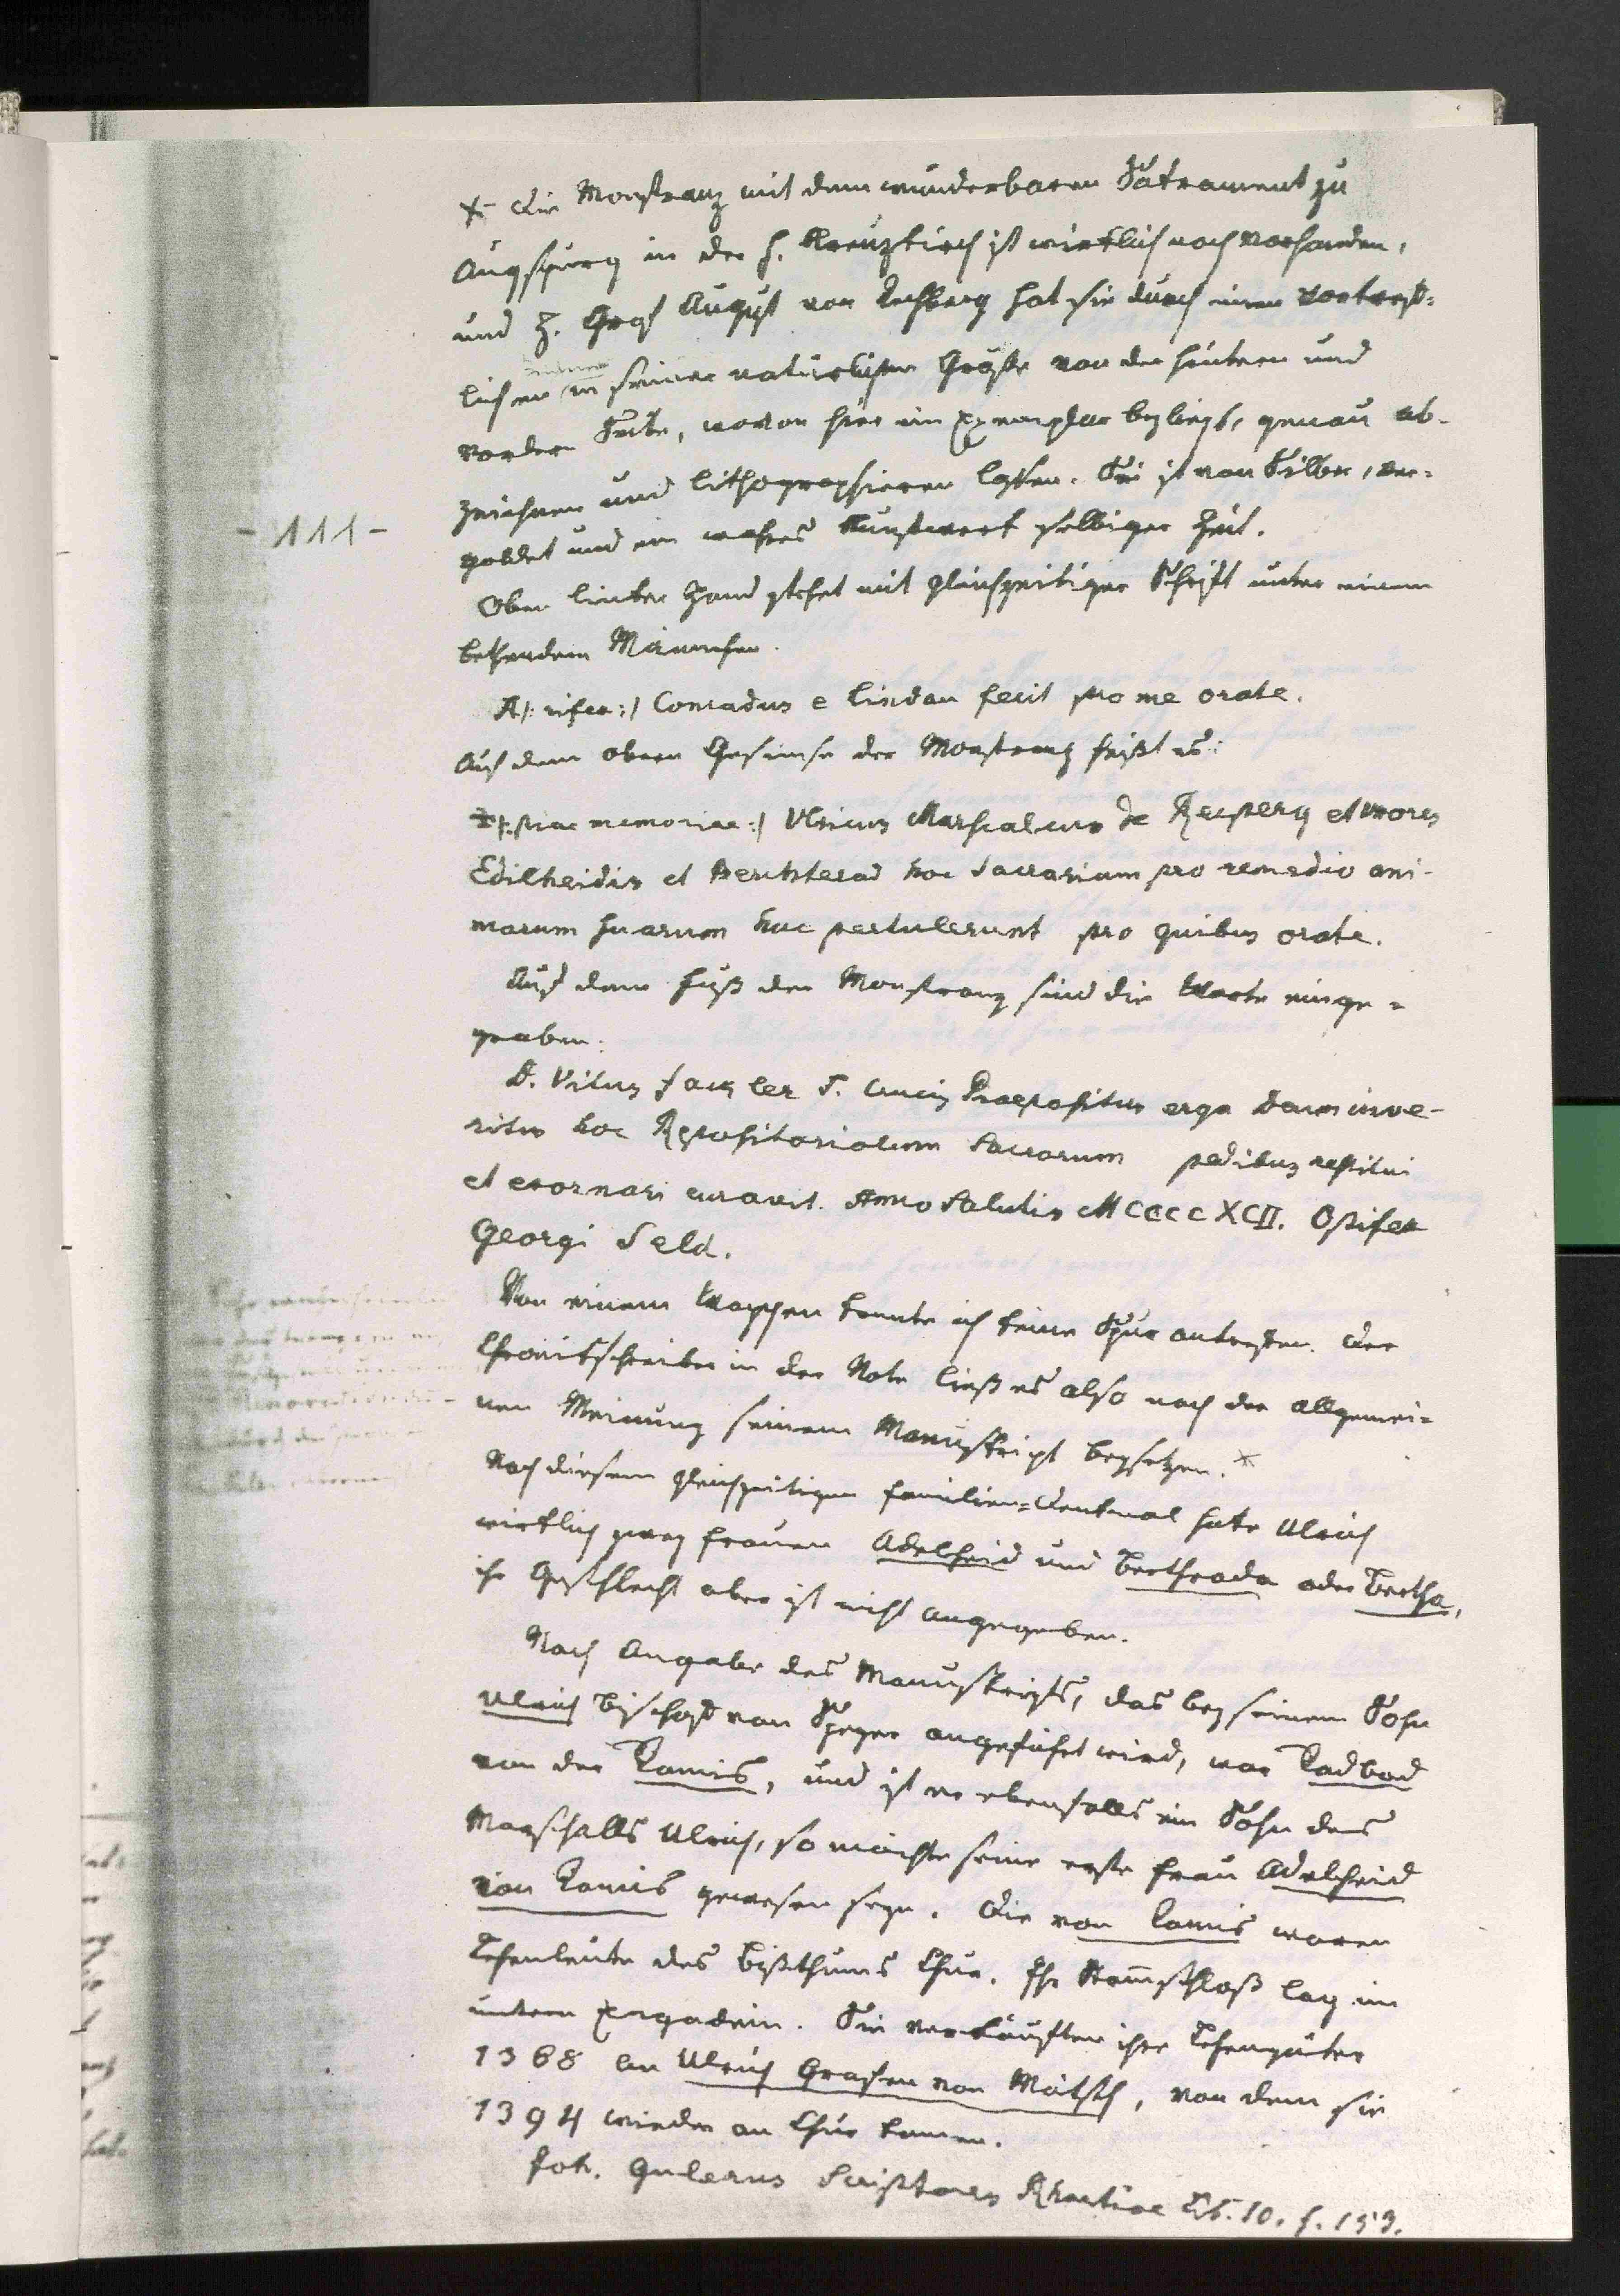 × Die Monstranz mit dem wunderbaren Sakrament zu
Augspurg in der h. Kreuzkirch ist wirklich noch vorhanden,
und H. Graf August von Rechberg hat sie durch einen vortreff=
lichen in seiner natürlichen Größe von der hintern und
vordern Seite, wovon hier ein Exemplar beyliegt, genau ab-
zeichnen und lithographieren lassen. Sie ist von Silber, ver=
goldet und ein wahres Kunstwerk selbiger Zeit.
- 111 -
Oben linker Hand stehet mit gleichzeitiger Schrift unter einem
bethenden Männchen.
A/: rifex :/ Conradus e lindau fecit pro me orate.
Auf dem obern Gesimse der Monstranz heißt es:
P/: piae memoriae :/ Ulricus Marscalcus de Recperg et uxores
Edilheidis et Berchterad hoc Sacrarium pro remedio ani-
marum suarum huc pertulerunt pro quibus orate.
Auf dem Fuß der Monstranz sind die Worte einge=
graben:
D. Vitus Faczler S. Crucis Praepositus erga deum inve-
ritus hoc Repositoriolum Sacrorum pedibus restitui
et exornari curavit. Anno Salutis MCCCCXCII. Opifex
Georgi Seld.
Von einem Wappen konnte ich keine Spur antreffen. Der
Chronikschreiber in der Note ließ es also nach der allgemei=
nen Meinung seinem Manuskript beysetzen. ×
Nach diesem gleichzeitigen Familien=Denkmal hate Ulrich
wirklich zwey Frauen Adelheid und Berthrada oder Bertha,
ihr Geschlecht aber ist nicht angegeben.
Nach Angabe des Manuskripts, das bey seinem Sohn
Ulrich Bischof von Speyer angeführt wird, war Radbod
von der Ramis, und ist er ebenfalls ein Sohn des
Marschalls Ulrich, so möchte seine erste Frau Adelheid
von Ramis gewesen seyn. Die von Ramis waren
Lehenleute des Bißthums Chur. Ihr Stammschloß lag im
untern Engadein. Sie verkauften ihre Lehengüter
1368 an Ulrich Grafen von Mätsch, von dem sie
1394 wieder an Chur kamen.
Joh. Gulerus Scriptores Rhaetiae Lib. 10. f. 153.